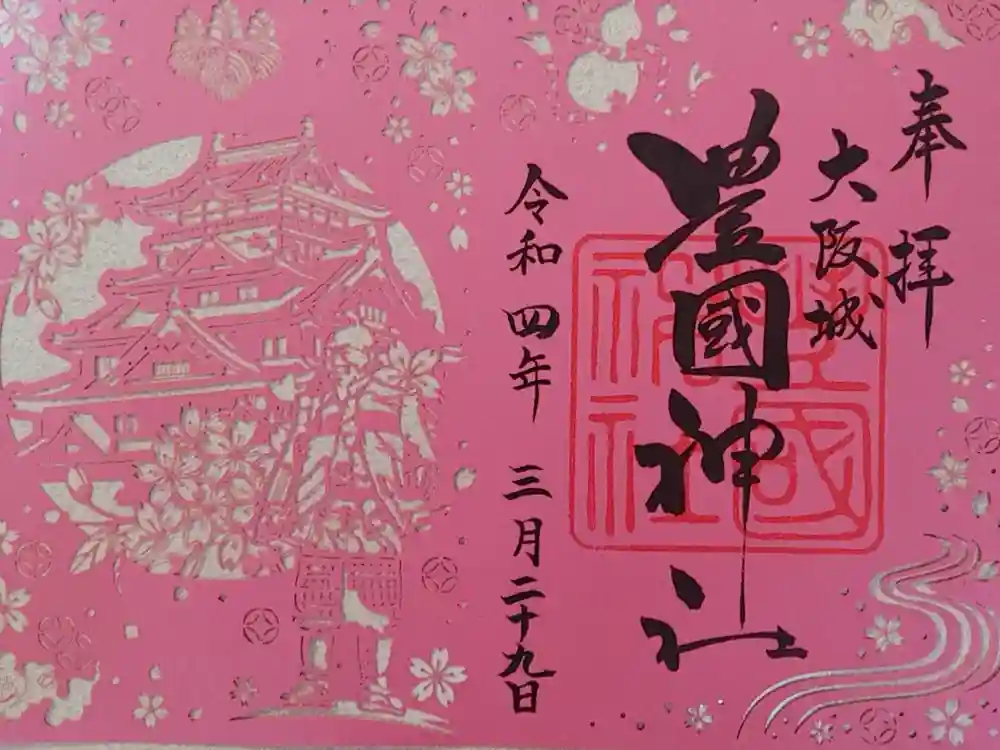 奉拝
大阪城
豊國神社
豊國神社
令和四年 三月二十九日